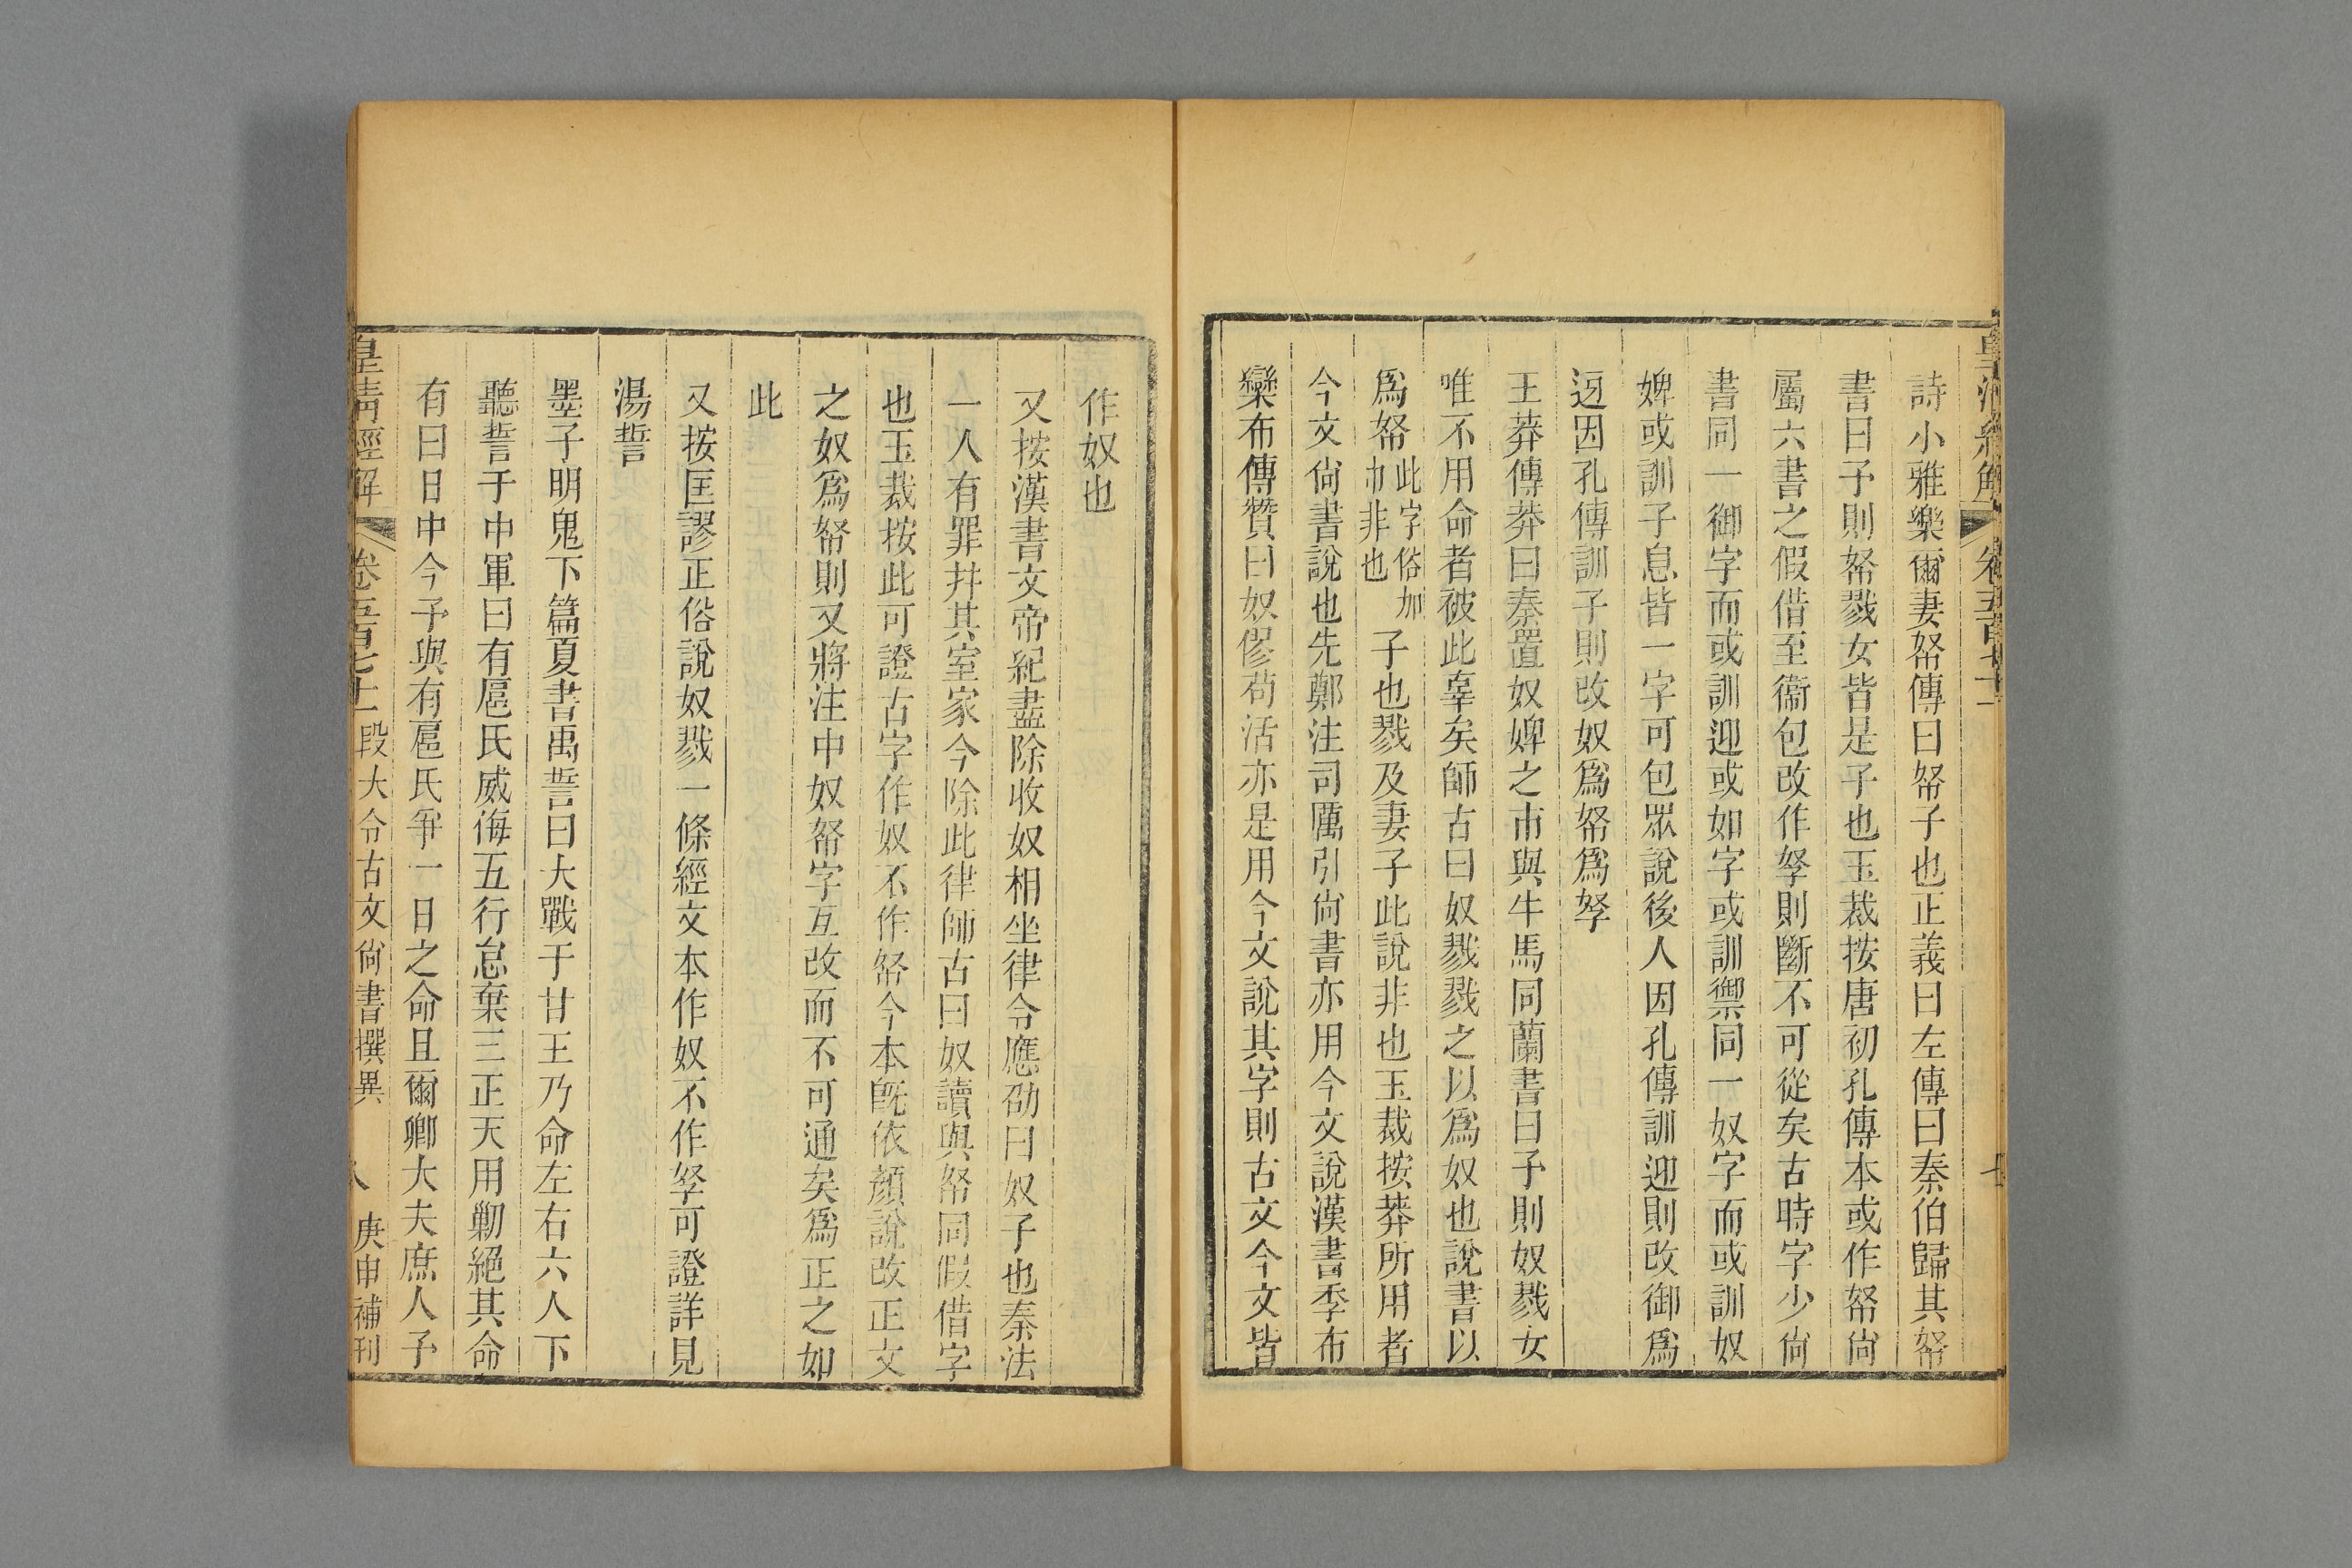 皇清經解 卷五百七十一 七
詩小雅樂爾妻帑傳曰帑子也正義曰左傳曰秦伯歸其帑
書曰予則帑戮女皆是子也玉裁按唐初孔傳本或作帑尙
屬六書之假借至衞包改作孥則斷不可從矣古時字少尙
書同一御字而或訓迎或如字或訓禦同一奴字而或訓奴
婢或訓子息皆一字可包眾說後人因孔傳訓迎則改御爲
迓因孔傳訓子則改奴爲帑爲孥
王莽傳莽曰秦置奴婢之市與牛馬同蘭書曰予則奴戮女
唯不用命者被此辠矣師古曰奴戮戮之以爲奴也說書以
爲帑此字俗加巾非也子也戮及妻子此說非也玉裁按莽所用者
今文尙書說也先鄭注司厲引尙書亦用今文說漢書季布
欒布傳贊曰奴僇苟活亦是用今文說其字則古文今文皆
作奴也
又按漢書文帝紀盡除收奴相坐律令應劭曰奴子也秦法
一人有罪幷其室家今除此律師古曰奴讀與帑同假借字
也玉裁按此可證古字作奴不作帑今本旣依顏說改正文
之奴爲帑則又將注中奴帑字互改而不可通矣爲正之如
此
又按匡謬正俗說奴戮一條經文本作奴不作孥可證詳見
湯誓
墨子明鬼下篇夏書禹誓曰大戰于甘王乃命左右六人下
聽誓于中軍曰有扈氏威侮五行怠棄三正天用勦絕其命
有曰日中今予與有扈氏爭一日之命且爾卿大夫庶人予
皇清經解 卷五百七十一 段大令古文尙書撰異 八 庚申補刊